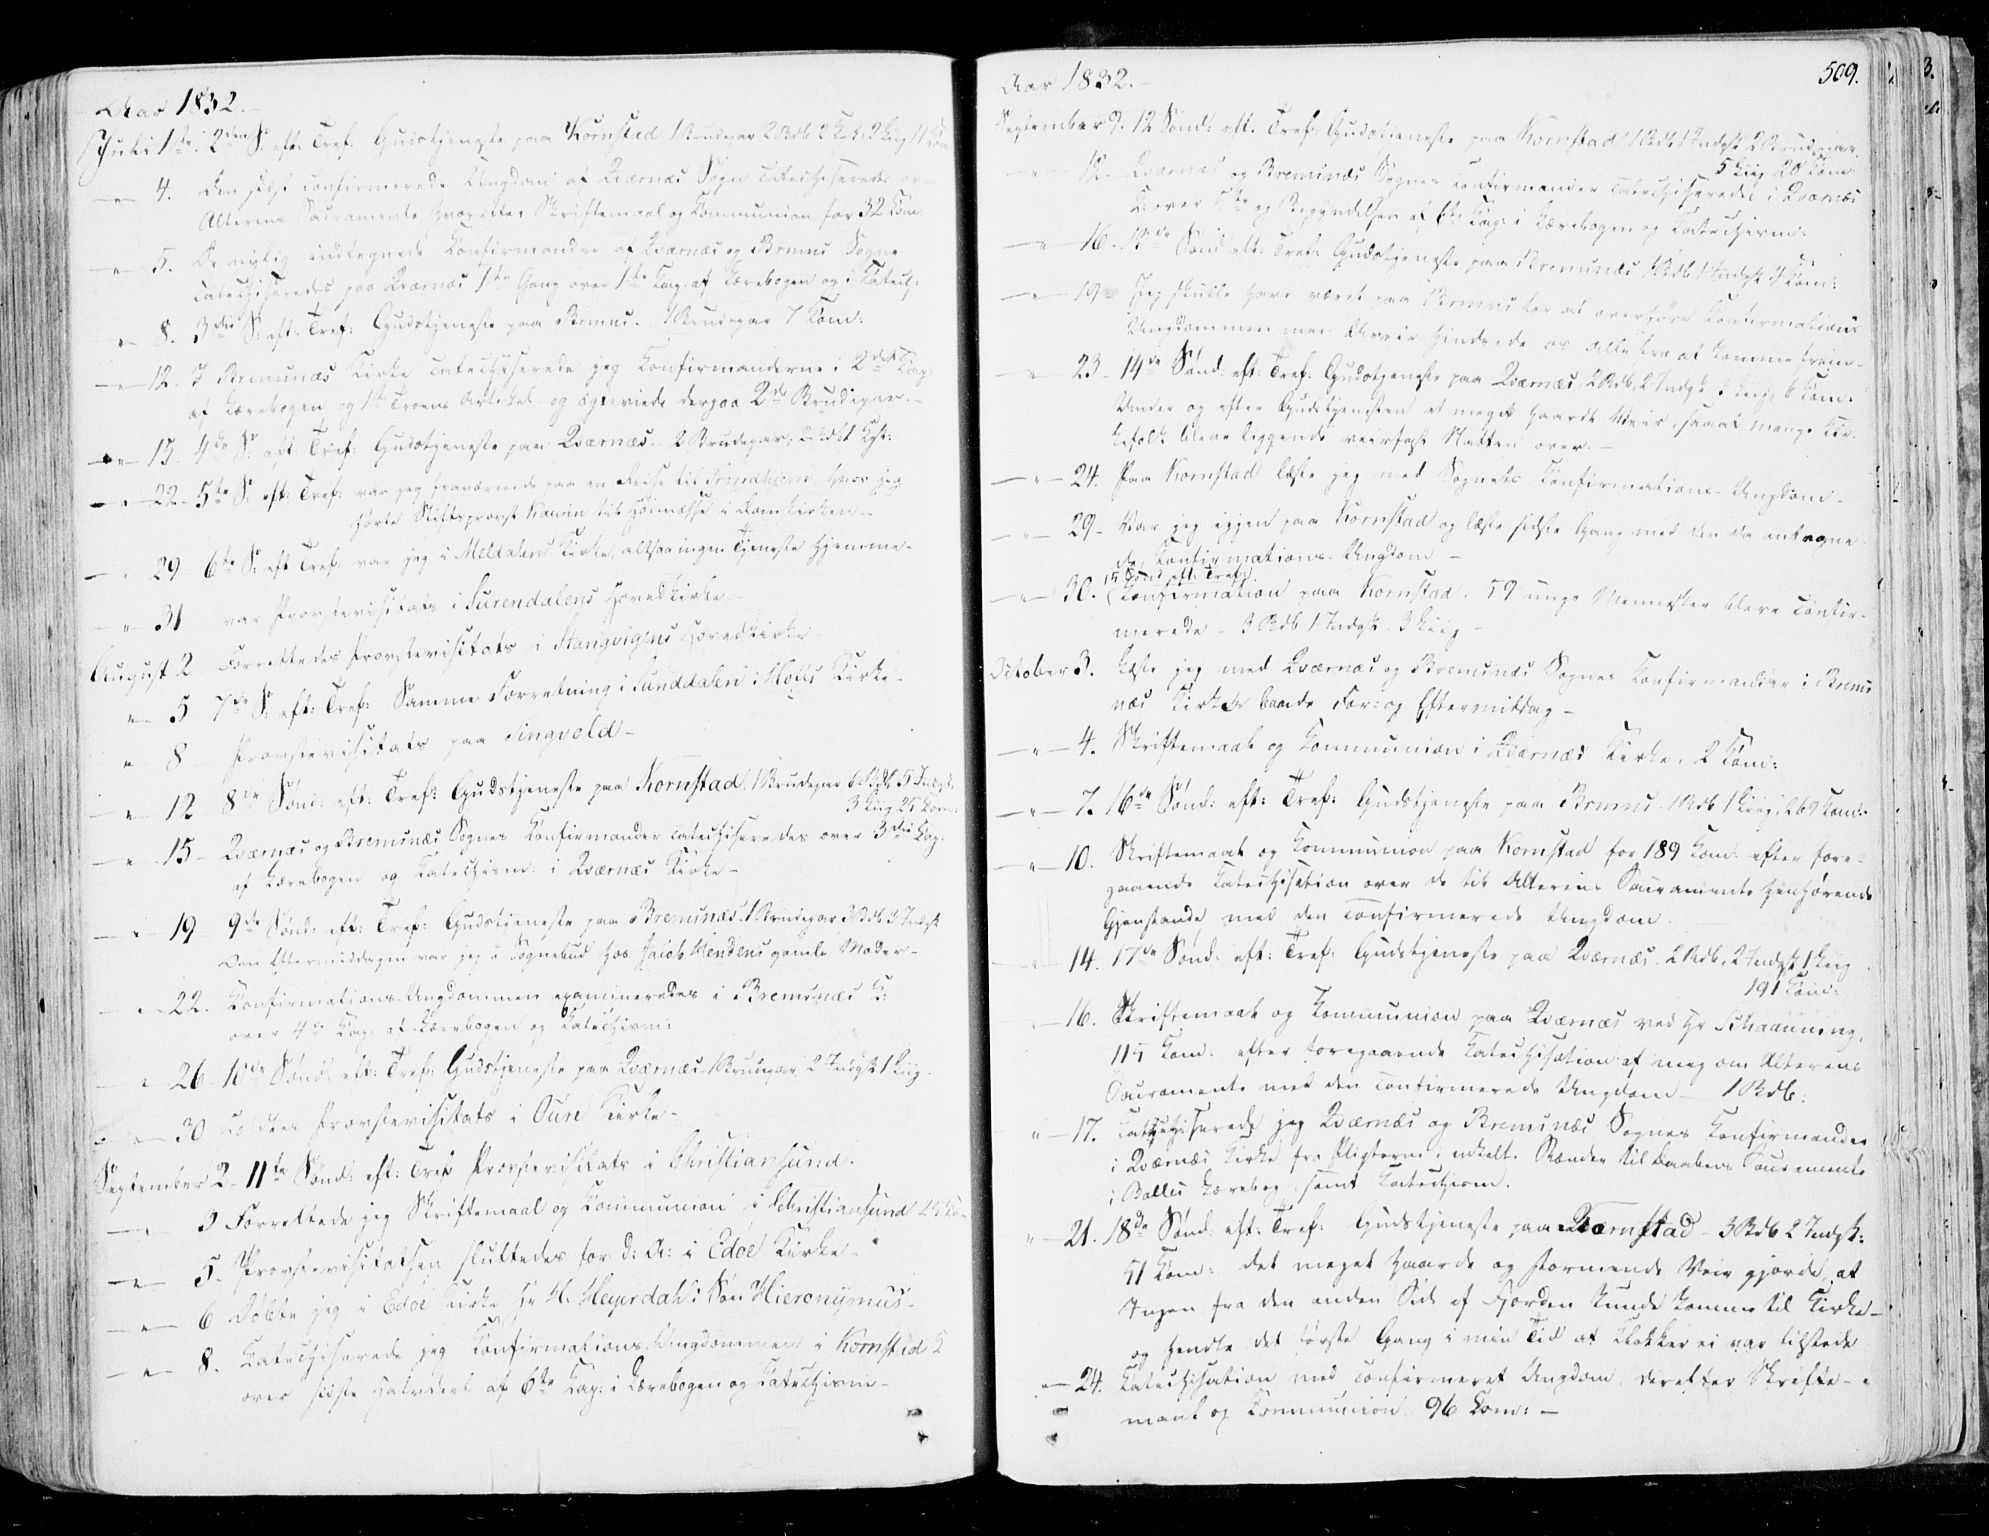 Aar 1832.
Juli 1ste 2den S: eft: Tref: Gudstjeneste paa Kornstad 1 Brudepar 2 Rdb 2 2 Kiig 11 Kom
4. Den sidst confirmerede Ungdom af Qværnæs Sogn catechiserede
Alterens Sacramente, Skriftemaal og Communion for 32 Kom.
5. De nylig indtegnede Confirmander af Qværnæs og Bremsnæs Sogne
catechiseredes paa Qværnæs 1ste Gang over 1ste Cap: af Lærebogen og i Catech:
8. 3die S: eft: Tref: Gudstjeneste paa Bremsnæs. 1 Brudepar 7 Kom:
12. I Bremsnæs Kirke catechiserede jeg Confirmanderne i 2det Cap:
af Lærebogen og 1ste Troens Artikel og egteviede derpaa 2de Brudepar.
15. 4de S: eft: Tref: Gudstjeneste paa Qværnæs. 2 Brudepar,
22. 5te S. eft: Tref: var jeg fraværende paa en Reise til Trondhiem, hvor jeg
hørte Stiftsprovst til Høimesse i Domkirken.
29 6te S: eft Tref: var jeg i Meldalens Kirke, altsaa ingen Tjeneste hjemme.
31 var Provstevisitats i Surendalens Hovedkirke.
August 2 Forrettedes Provstevisitats i Stangvigens Hovedkirke.
5 7de S: eft: Tref: Samme Forretning i Sunddalen i Kirke.
8 Provstevisitats paa Tingvold
12 8de Sønd: eft: Tref: Gudstjeneste paa Kornstad. 1 Brudepar 6 Rdb 5 Indgk.
3 Kiig 25 Kom.
15 Qværnæs og Bremsnæs Sognes Confirmander catechiseredes over 3die Cap:
af Lærebogen og Catechism: i Qværnæs Kirke
19 9de Sønd: eft: Tref: Gudstjeneste paa Bremsnæs. 1 Brudepar 3 Rdb 3 Indgk
Om Eftermiddagen var jeg i Sognebud hos Jacob Hendens gamle Moder
22. Confirmations-Ungdommen examineredes i Bremsnæs K:
over 4de Cap: af Lærebogen og Catechism:
26 10de Sønd: eft: Tref: Gudstjeneste paa Qværnæs. 1 Brudepar 2 Indgk 1 Kiig
30 Holdtes Provstevisitats i Oure Kirke
September 2 11te Sønd: eft: Tref Provstevisitats i Christiansund.
3 Forrettede jeg Skriftemaal og Communion i Christiansund
5. Provstevisitatsen sluttedes for d: A: i Edøe Kirke
6 Døbte jeg i Edøe Kirke Hr H. Heyerdahls Søn Hieronymus.
8. Catechiserede jeg Confirmations-Ungdommen i Kornstad K
over sidste Halvdeel af 6te Cap: i Lærebogen og Catechism
Aar 1832. 509.
September 9. 12 Sønd: eft. Tref: Gudstjeneste paa Kornstad 1 Rdb 1 Indgk 2 Brudepar
5 Kiig 20 Kom:
12. Qværnæs og Bremsnæs Sognes Confirmander catechiseredes i Qværnæs
K: over og Begyndelsen af 6te Cap: i Lærebogen og Catechism:
16. 13de Sønd eft: Tref: Gudstjeneste paa Bremsnæs 1 Rdb 1 Indgk Kom:
19 Jeg skulde have været paa Bremsnæs for at overhøre Confirmations
Ungdommen men Uveir hindrede os alle fra at komme frem.
23 14de Sønd: eft: Tref: Gudstjeneste paa Qværnæs, 2 Rdb, 2 Indgk 3 Kiig 6 Kom.
Under og efter Gudstjenesten et meget haardt Veir, saaat mange Kir-
kefolk bleve liggende veirfast Natten over.
24. Paa Kornstad læste jeg med Sognets Confirmations-Ungdom.
29 Var jeg igjen paa Kornstad og læste sidste Gang med den da antegne-
de Confirmations-Ungdom
15 Sønd eft: Tref:
30. Confirmation paa Kornstad. 59 unge Mennesker bleve confir-
merede 3 Rdb 1 Indgk 3 Kiig
October 3. Læste jeg med Qværnæs og Bremsnæs Sognes Confirmander i Brems
næs Kirke baade For- og Eftermiddag
4. Skriftemaal og Communion i Qværnæs Kirke, 2 Kom:
7. 16de Sønd: eft: Tref: Gudstjeneste paa Bremsnæs 1 Rdb 1 Kiig 269 Kom:
10. Skriftemaal og Communion paa Kornstad for 189 Kom: efter fore-
gaaende Catechisation over de til Alterens Sacramente henhørende
Gjenstande, med den confirmerede Ungdom
14. 17de Sønd: eft: Tref: Gudstjeneste paa Qværnæs. 2 Rdb, 2 Indgk 1 Kiig
191 Kom:
16. Skriftemaal og Communion paa Qværnæs ved Hr Schaanning,
115 Kom: efter foregaaende Catechisation af meg om Alterens
Sacramente med den confirmerede Ungdom 1 Rdb:
17. Catechiserede jeg Qværnæs og Bremsnæs Sognes Confirmander
i Qværnæs Kirke fra Pligterne, til Daabens Sacramente
i Balles Lærebog samt Catechism.
21. 18de Sønd: eft. Tref: Gudstjeneste paa Kornstad 3 Rdb 2 Indgk:
51 Kom: det meget haarde og stormende Veir gjorde, at
Ingen fra den anden Side af Fjorden kunde komme til Kirke
og hendte det første Gang i min Tid at Klokker ei var tilstede
24. Catechisation med confirmeret Ungdom, derefter Skrifte-
maal og Communion 96 Kom: